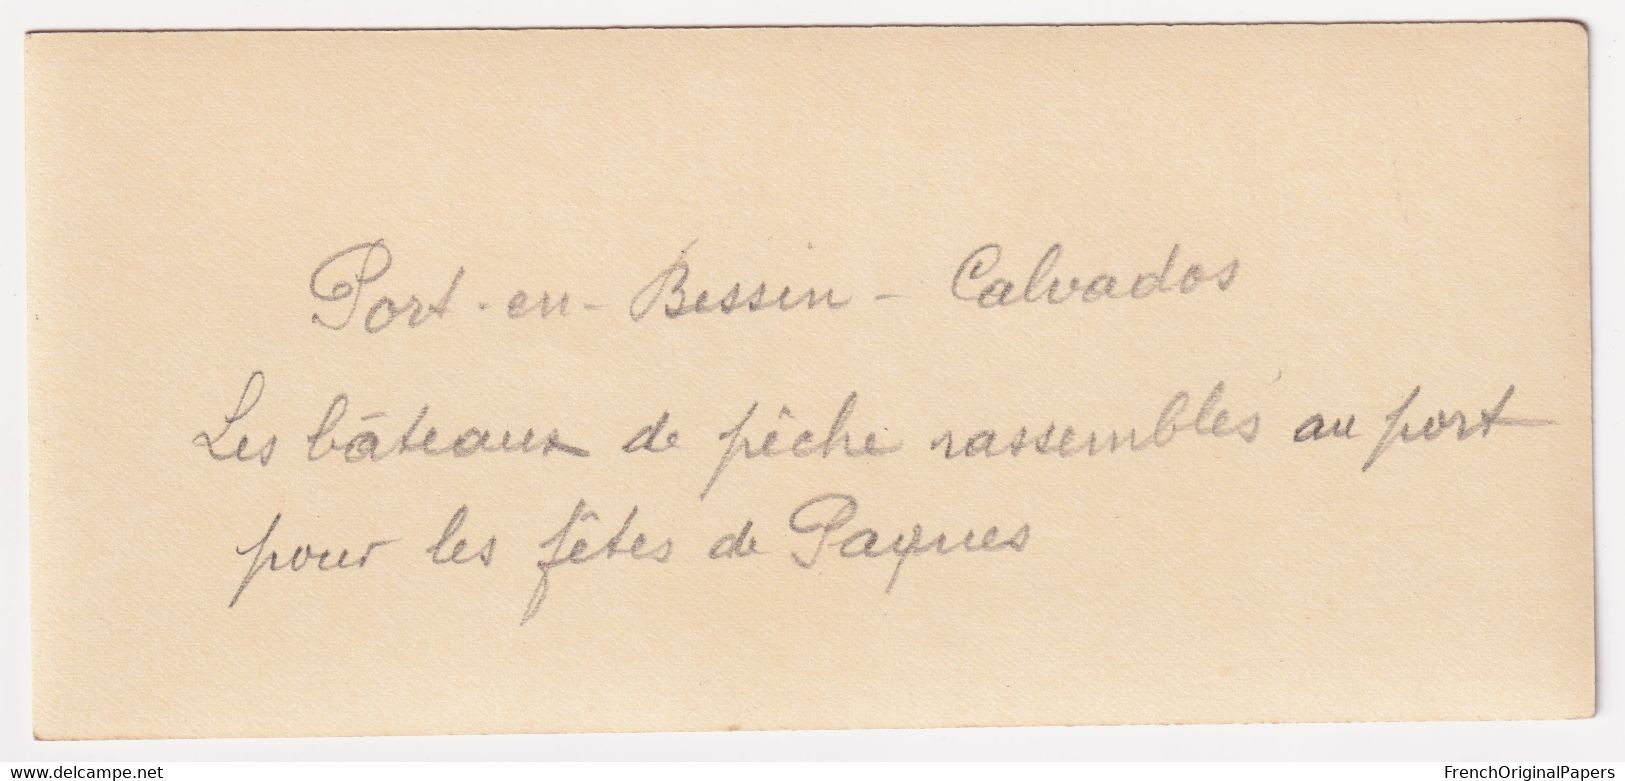 Port-en-Bessin - Calvados
Les bâteaux de pêche rassemblés au port
pour les fêtes de Paques
www.delcampe.net
FrenchOriginalPapers